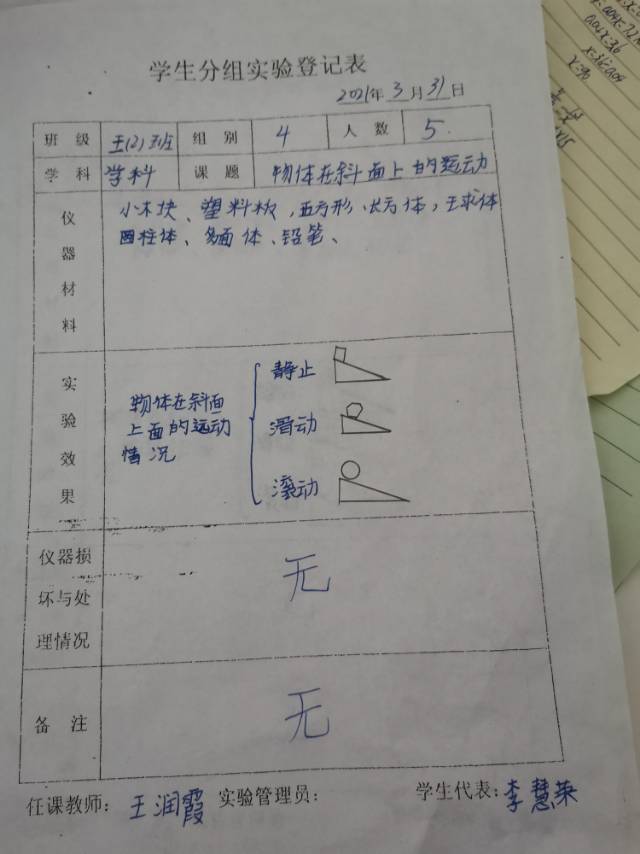 学生分组实验登记表
2021年3月31日
班级 王(2)班 组别 4 人数 5.
学科 学科 课题 物体在斜面上的运动
仪器材料
小木块、塑料板,五方形、长方体,王求体
圆柱体、多面体、铅笔、
实验效果
物体在斜面
上面的运动
情况
静止
滑动
滚动
仪器损
坏与处
理情况
无
备注
无
任课教师: 王润霞 实验管理员: 学生代表: 李慧荣